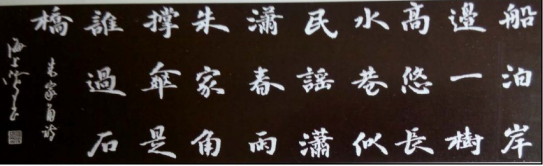 船泊岸
邊一樹
高悠長
水巷似
民謠瀟
瀟春雨
朱家角
撐傘是
誰過石
橋
朱家角詩
海上